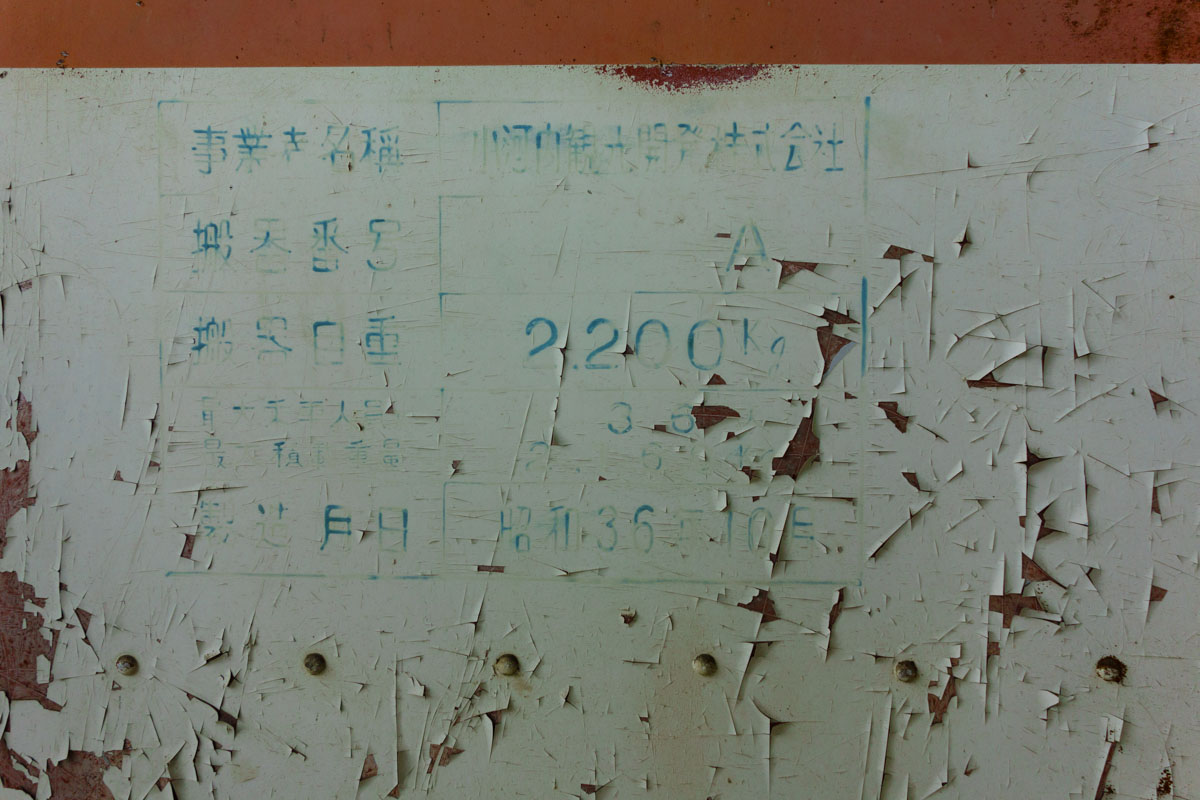 事業者名称 小河内観光開発株式会社
搬器番号 A
搬器自重 2.200Kg
最大乗車人員 36
最 積 重量
製造月日 昭和36年10月